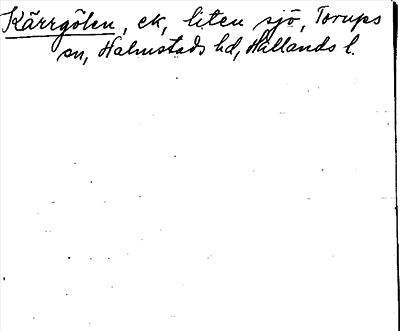 Kärrgölen, ek, liten sjö, Torups
sn, Halmstads hd, Hallands l.